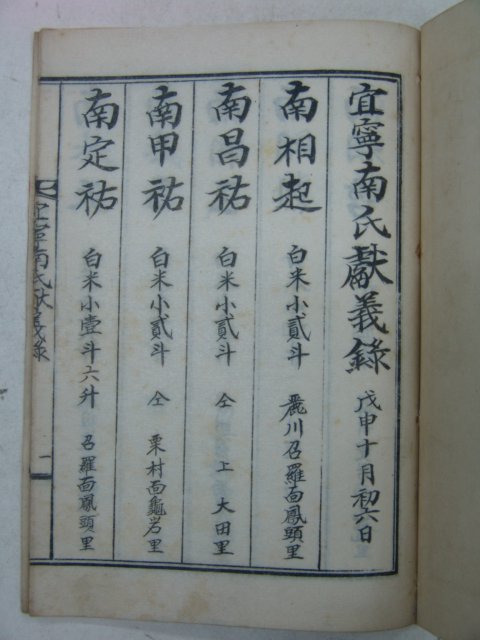 宜寧南氏獻義錄 戊申十月初六日
南相起 白米小貳斗 麗川召羅面鳳頭里
南昌祐 白米小貳斗 仝 上 大田里
南甲祐 白米小貳斗 仝 栗村面龜岩里
南定祐 白米小壹斗六升 召羅面鳳頭里
宜寧南氏獻義錄 一